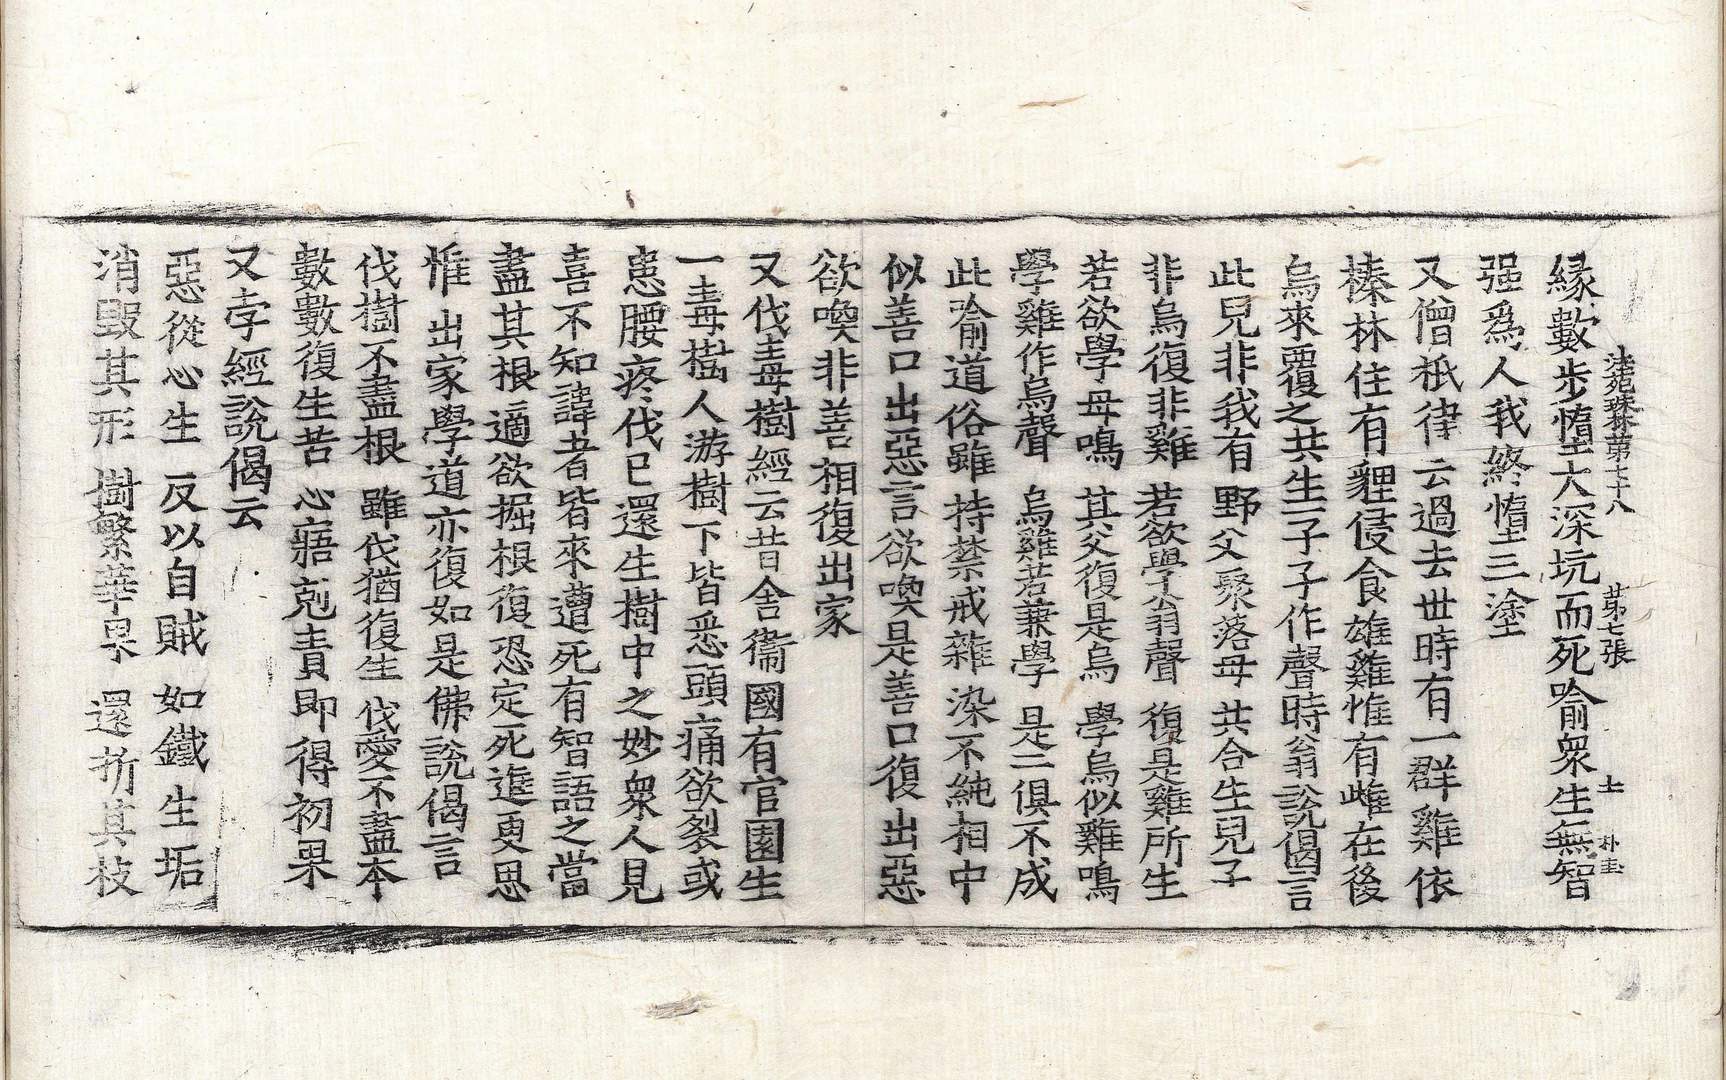 法苑珠林第七十八 第七張 士 朴圭
緣數步墮大深坑而死喻衆生無智
强爲人我終墮三塗
又僧祇律云過去世時有一群雞依
榛林住有貍侵食雄雞惟有雌在後
烏來覆之共生一子子作聲時翁說偈言
此兒非我有 野父聚落母 共合生兒子
非烏復非雞 若欲學翁聲 復是雞所生
若欲學母鳴 其父復是烏 學烏似雞鳴
學雞作烏聲 烏雞若兼學 是二俱不成
此喻道俗雖持禁戒雜染不純相中
似善口出惡言欲喚是善口復出惡
欲喚非善相復出家
又伐毒樹經云昔舍衞國有官園生
一毒樹人游樹下皆悉頭痛欲裂或
患腰疼伐已還生樹中之妙衆人見
喜不知諱者皆來遭死有智語之當
盡其根適欲掘根復恐定死進更思
惟出家學道亦復如是佛說偈言
伐樹不盡根 雖伐猶復生 伐愛不盡本
數數復生苦 心寤剋責即得初果
又孛經說偈云
惡從心生 反以自賊 如鐵生垢
消毀其形 樹繁華果 還折其枝